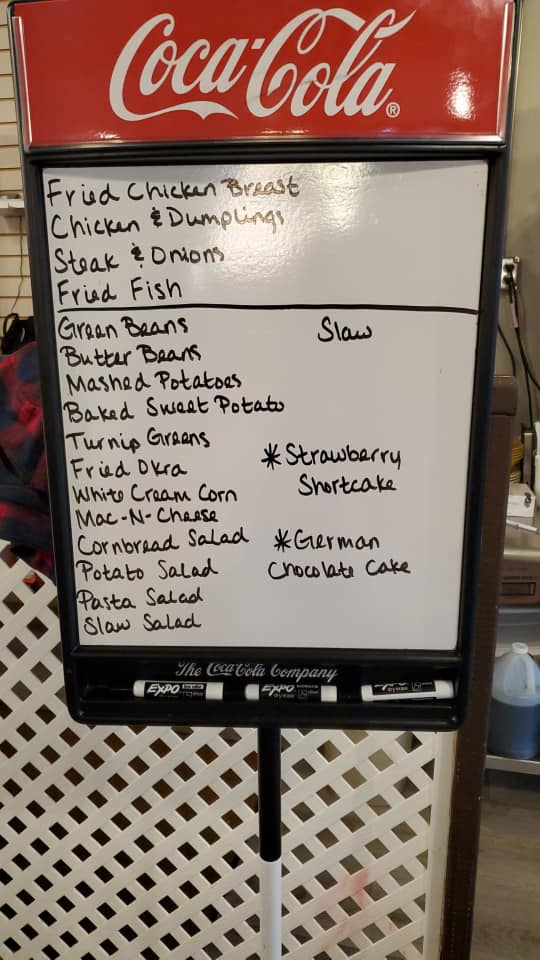 Coca-Cola®
Fried Chicken Breast
Chicken & Dumplings
Steak & Onions
Fried Fish
Green Beans
Butter Beans
Mashed Potatoes
Baked Sweet Potato
Turnip Greens
Fried Okra
White Cream Corn
Mac-N-Cheese
Cornbread Salad
Potato Salad
Pasta Salad
Slaw Salad
Slaw
*Strawberry
Shortcake
*German
Chocolate Cake
The Coca-Cola Company
EXPO
EXPO
EXPO